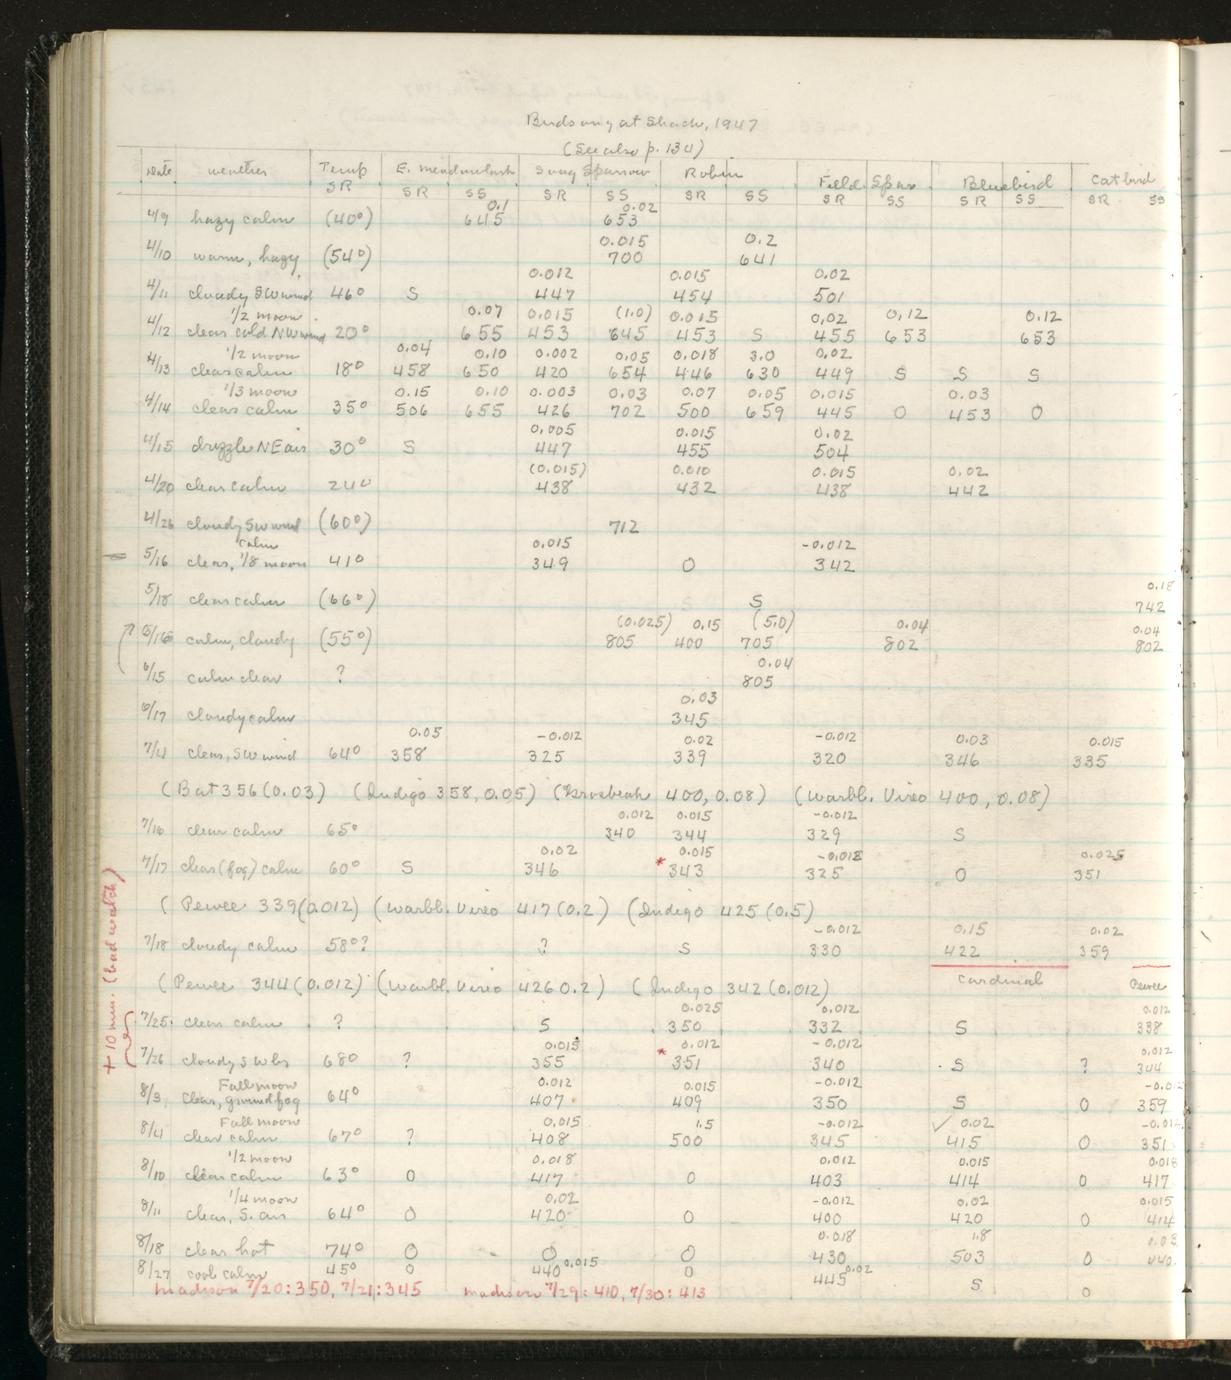 Birdsong at Shack, 1947
(See also p. 134)
Date weather Temp E. meadowlark Song Sparrow Robin Field Spar. Bluebird Catbird
SR SR SS SR SS SR SS SR SS SR SS SR SS
0.1 0.02
4/9 hazy calm (40°) 645 653
0.015 0.2
4/10 warm, hazy (54°) 700 641
0.012 0.015 0.02
4/11 cloudy SW wind 46° S 447 454 501
1/2 moon 0.07 0.015 (1.0) 0.015 0.02 0.12 0.12
4/12 clear cold NW wind 20° 655 453 645 453 S 455 653 653
1/2 moon 0.04 0.10 0.002 0.05 0.018 3.0 0.02
4/13 clear calm 18° 458 650 420 654 446 630 449 S S S
1/3 moon 0.15 0.10 0.003 0.03 0.07 0.05 0.015 0.03
4/14 clear calm 35° 506 655 426 702 500 659 445 0 453 0
0.005 0.015 0.02
4/15 drizzle NE air 30° S 447 455 504
(0.015) 0.010 0.015 0.02
4/20 clear calm 24° 438 432 438 442
4/26 cloudy SW wind (60°) 712
calm 0.015 -0.012
5/16 clear, 1/8 moon 41° 349 0 342
0.18
5/18 clear calm (66°) S 742
(0.025) 0.15 (5.0) 0.04 0.04
5/16 calm, cloudy (55°) 805 400 705 802 802
0.04
6/15 calm clear ? 805
0.03
6/17 cloudy calm 345
0.05 -0.012 0.02 -0.012 0.03 0.015
7/4 clear, SW wind 64° 358 325 339 320 346 335
(Bat 356 (0.03) (Indigo 358, 0.05) (Grosbeak 400, 0.08) (Warbl. Vireo 400, 0.08)
0.012 0.015 -0.012
7/16 clear calm 65° 340 344 329 S
0.02 0.015 -0.018 0.025
7/17 clear (fog) calm 60° S 346 * 343 325 0 351
(Pewee 339 (0.012) (Warbl. Vireo 417 (0.2) (Indigo 425 (0.5)
-0.012 0.15 0.02
7/18 cloudy calm 58°? ? S 330 422 359
(Pewee 344 (0.012) (Warbl. Vireo 426 0.2) (Indigo 342 (0.012)
Cardinal Pewee
0.025 0.012 0.012
7/25 clear calm ? S 350 332 S 338
0.015 * 0.012 -0.012 0.012
7/26 cloudy S wbs 68° ? 355 351 340 S ? 344
Full moon 0.012 0.015 -0.012 -0.012
8/3 clear, ground fog 64° 407 409 350 S 0 359
Full moon 0.015 1.5 -0.012 ✓ 0.02 -0.012
8/4 clear calm 67° ? 408 500 345 415 0 351
1/2 moon 0.018 0.012 0.015 0.018
8/10 clear calm 63° 0 417 0 403 414 0 417
1/4 moon 0.02 -0.012 0.02 0.015
8/11 clear, S. air 64° 0 420 0 400 420 0 414
0.018 1.8 0.03
8/18 clear hot 74° 0 0 0 430 503 0 440
8/27 cool calm 45° 0 440 0.015 0 445 0.02 S 0
Madison 7/20: 350, 7/21: 345 Madison 7/29: 410, 7/30: 413
+ 10 min. (bad watch)